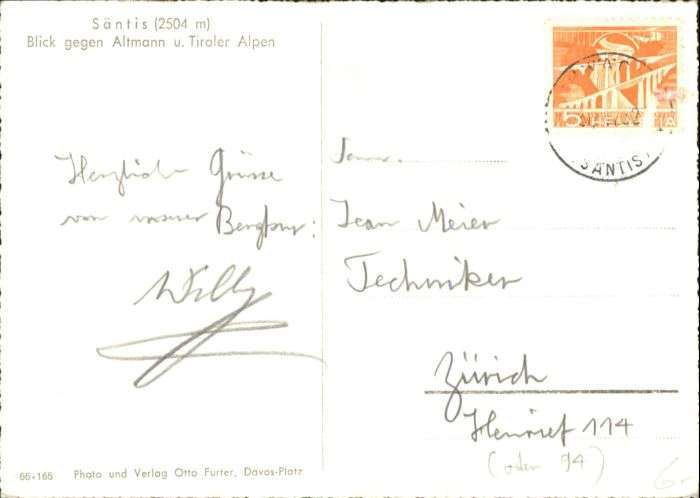 Säntis (2504 m)
Blick gegen Altmann u. Tiroler Alpen
5 HELVETIA
SÄNTIS
Herzliche Grüsse
von unserer Bergtour:
Willy
Fam.
Jean Meier
Techniker
Zürich
114
(oder 94)
6.-
66-165 Photo und Verlag Otto Furter, Davos-Platz